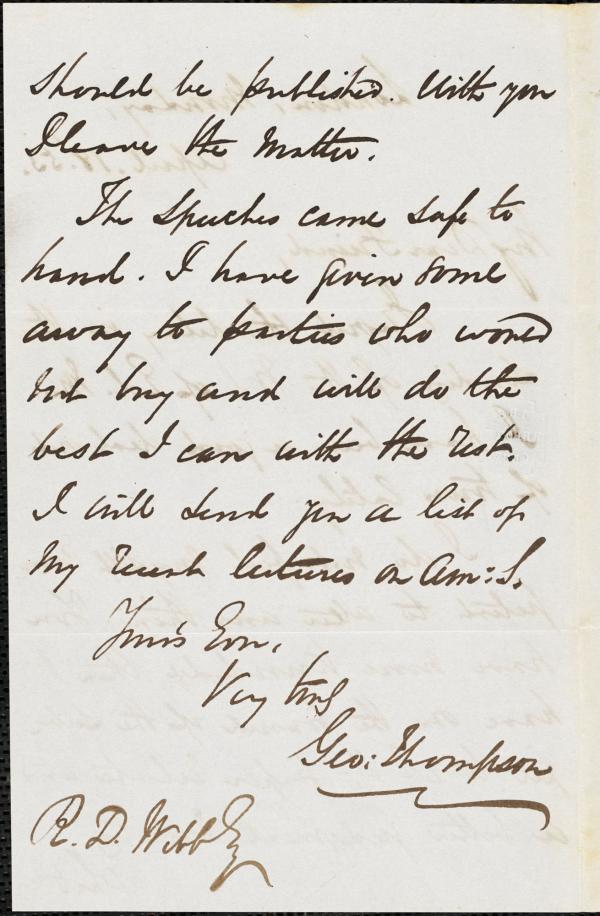 should be published. With you
I leave the matter.
The speeches came safe to
hand. I have given some
away to parties who would
not buy and will do the
best I can with the rest.
I will send you a list of
my recent lectures on Am: S.
Yours Ever,
Very truly
Geo: Thompson
R. D. Webb Esq